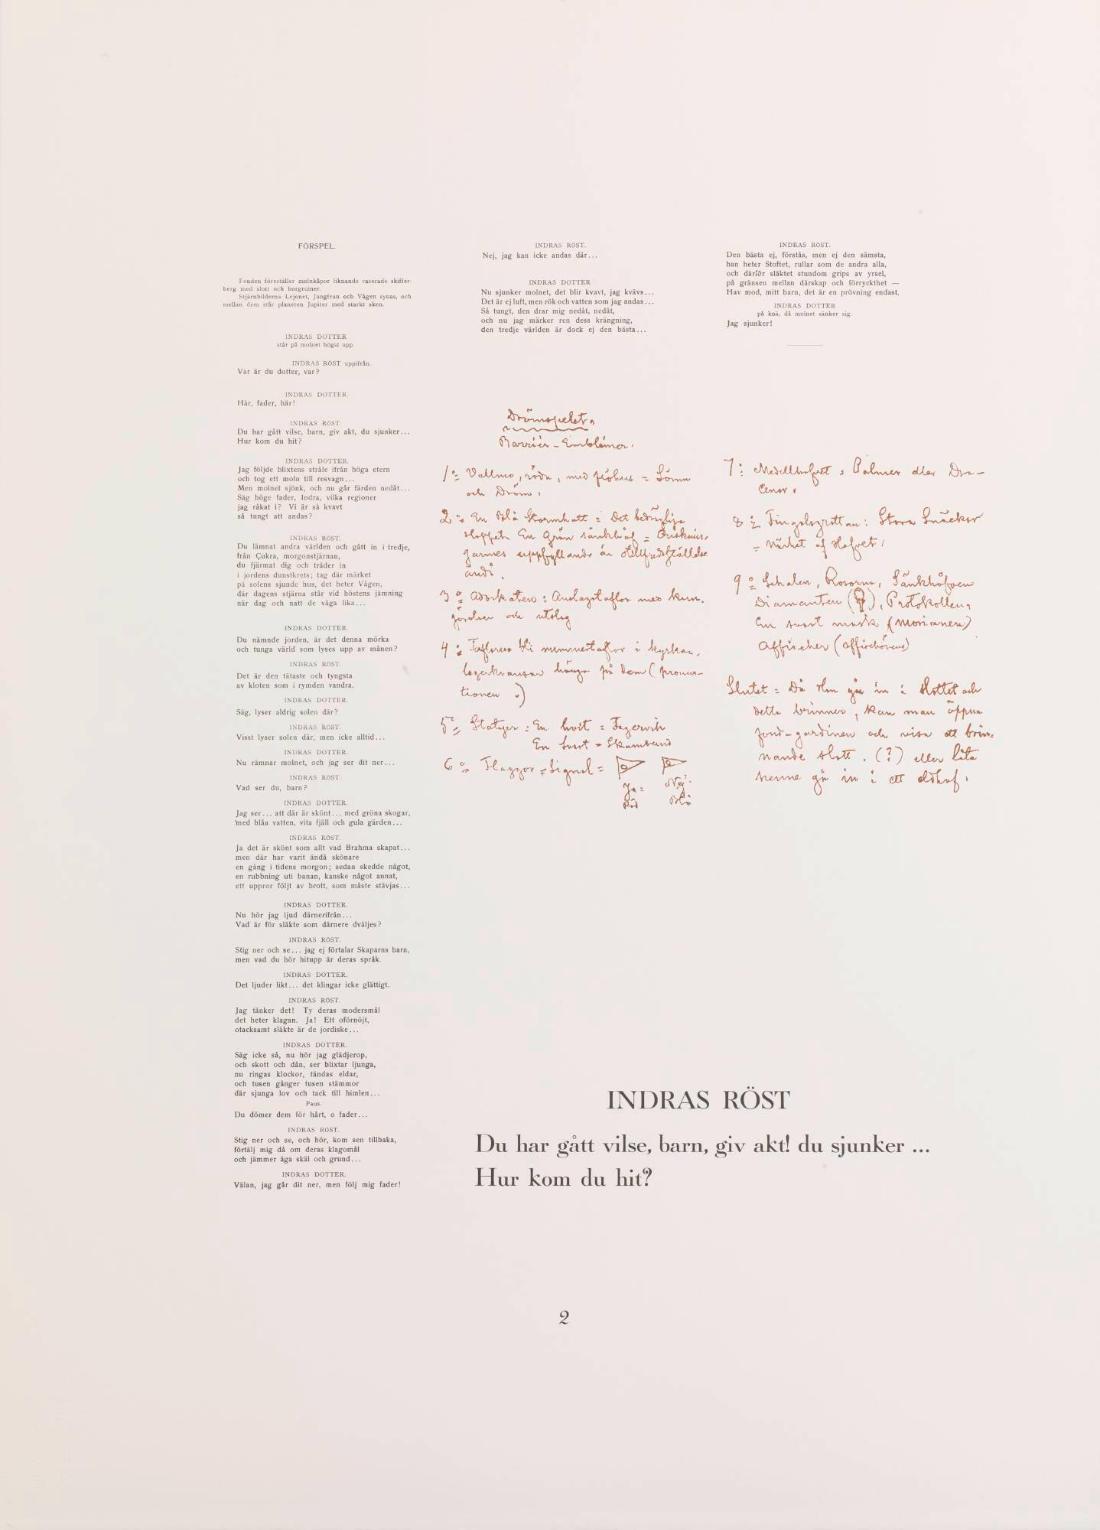 FÖRSPEL.
Fonden föreställer molnkåpor liknande raserade skiffer-
berg med slott och borgruiner.
Stjärnbilderna Lejonet, Jungfrun och Vågen synas, och
mellan dem står planeten Jupiter med starkt sken.
INDRAS DOTTER
står på molnet högst upp.
INDRAS RÖST uppifrån.
Var är du dotter, var?
INDRAS DOTTER.
Här, fader, här!
INDRAS RÖST
Du har gått vilse, barn, giv akt, du sjunker...
Hur kom du hit?
INDRAS DOTTER.
Jag följde blixtens stråle ifrån höga etern
och tog ett moln till resvagn...
Men molnet sjönk, och nu går färden nedåt...
Säg höge fader, Indra, vilka regioner
jag råkat i? Vi är så kvavt
så tungt att andas?
INDRAS RÖST.
Du lämnat andra världen och gått in i tredje,
från Çukra, morgonstjärnan,
du fjärmat dig och träder in
i jordens dunstkrets; tag där märket
på solens sjunde hus, det heter Vågen,
där dagens stjärna står vid höstens jämning
när dag och natt de väga lika...
INDRAS DOTTER.
Du nämnde jorden, är det denna mörka
och tunga värld som lyses upp av månen?
INDRAS RÖST.
Det är den tätaste och tyngsta
av kloten som i rymden vandra.
INDRAS DOTTER.
Säg, lyser aldrig solen där?
INDRAS RÖST.
Visst lyser solen där, men icke alltid...
INDRAS DOTTER.
Nu rämnar molnet, och jag ser dit ner...
INDRAS RÖST.
Vad ser du, barn?
INDRAS DOTTER.
Jag ser... att där är skönt... med gröna skogar,
med blåa vatten, vita fjäll och gula gärden...
INDRAS RÖST.
Ja det är skönt som allt vad Brahma skapat...
men där har varit ändå skönare
en gång i tidens morgon; sedan skedde något,
en rubbning uti banan, kanske något annat,
ett uppror följt av brott, som måste stävjas...
INDRAS DOTTER.
Nu hör jag ljud därnerifrån...
Vad är för släkte som därnere dväljes?
INDRAS RÖST.
Stig ner och se... jag ej förtalar Skaparns barn,
men vad du hör hitupp är deras språk.
INDRAS DOTTER.
Det ljuder likt... det klingar icke glättigt.
INDRAS RÖST.
Jag tänker det! Ty deras modersmål
det heter klagan. Ja! Ett oförnöjt,
otacksamt släkte är de jordiske...
INDRAS DOTTER.
Säg icke så, nu hör jag glädjerop,
och skott och dån, ser blixtar ljunga,
nu ringas klockor, tändas eldar,
och tusen gånger tusen stämmor
där sjunga lov och tack till himlen...
Paus.
Du dömer dem för hårt, o fader...
INDRAS RÖST.
Stig ner och se, och hör, kom sen tillbaka,
förtälj mig då om deras klagomål
och jämmer äga skäl och grund...
INDRAS DOTTER.
Välan, jag går dit ner, men följ mig fader!
INDRAS RÖST.
Nej, jag kan icke andas där...
INDRAS DOTTER
Nu sjunker molnet, det blir kvavt, jag kvävs...
Det är ej luft, men rök och vatten som jag andas...
Så tungt, den drar mig nedåt, nedåt,
och nu jag märker ren dess krängning,
den tredje världen är dock ej den bästa...
INDRAS RÖST.
Den bästa ej, förstås, men ej den sämsta,
han heter Stoftet, rullar som de andra alla,
och därför släktet stundom grips av yrsel,
på gränsen mellan dårskap och förryckthet —
Hav mod, mitt barn, det är en prövning endast.
INDRAS DOTTER
på knä, då molnet sänker sig.
Jag sjunker!
Drömspelet.
Barriér-Emblémer.
1: Vallmo, röda, med fröhus = Sömn
och Dröm.
2: En blå Stormhatt = Det bedrägliga
Hoppet. En grön sänkhåf = Önsknin-
garnes uppfyllande är otillfredsställelse
ändå.
3: Advokaten: Anslagstaflor med kun-
görelser och utslag
4: Taflorna bli nummertaflor i kyrkan,
lagerkransar hänga på dem (promo-
tionen.)
5: Statyer: En hvit = Fagervik
En svart = Skamsund
6: Flaggor = Signal =
Ja = Nej:
Röd Blå
7: Medelhafvet = Palmer eller Dra-
cenor.
8: Fingalsgrottan: Stora Snäckor
= närhet af Hafvet.
9: Schalen, Rosorna, Sänkhåfven
Diamanten, Protokollen,
En svart mask (morianen)
Affischer (affischören)
Slutet = Då Hon går in i slottet och
detta brinner, kan man öppna
fond-gardinen och visa ett brin-
nande slott. (?) eller låta
henne gå in i ett eldhaf.
INDRAS RÖST
Du har gått vilse, barn, giv akt! du sjunker ...
Hur kom du hit?
2